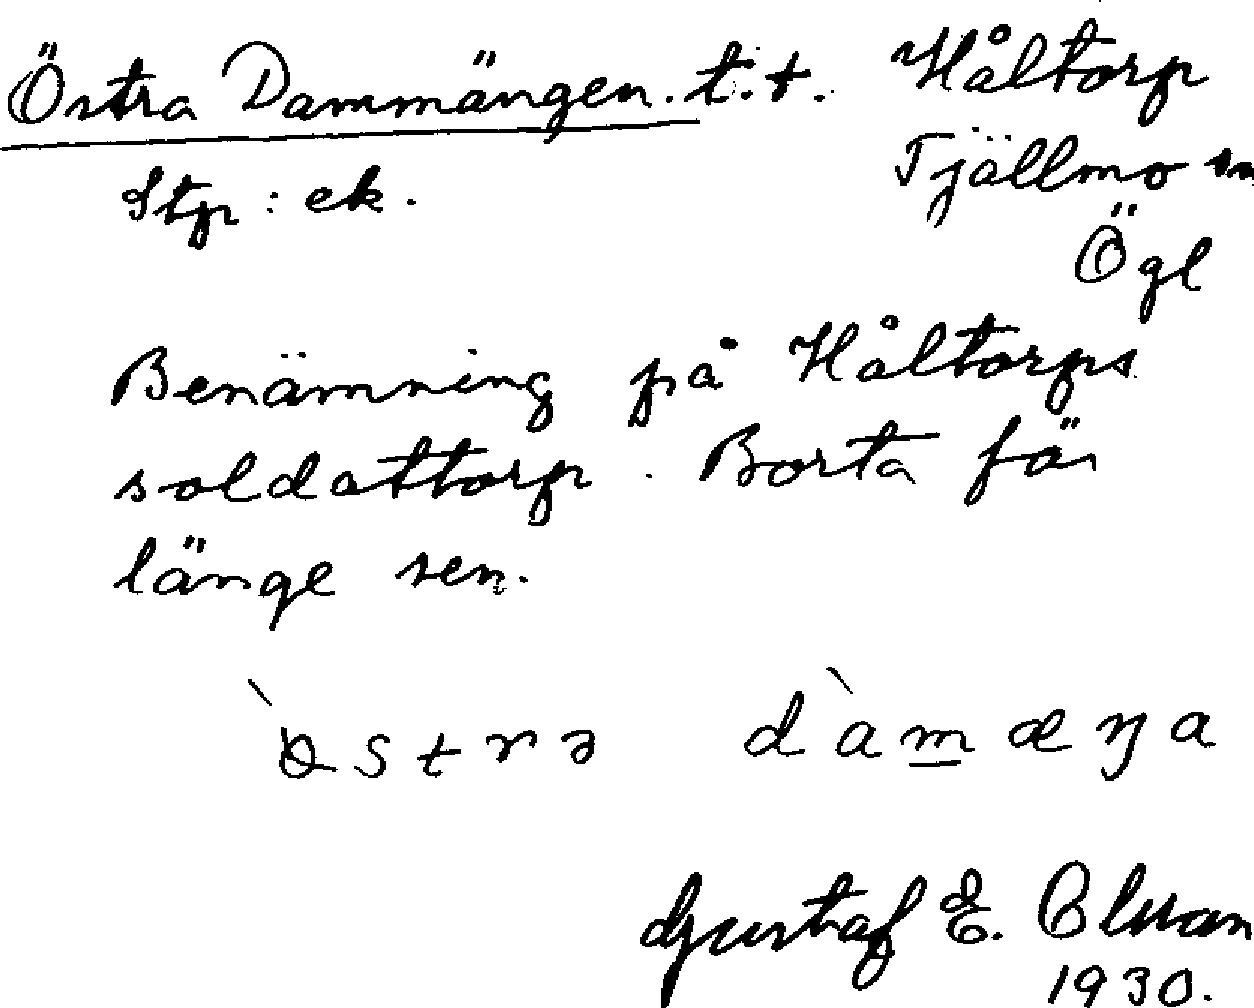 Östra Dammängen. t.t. Håltorp
Tjällmo sn
Stp: ek.
Ögl
Benämning på Håltorps
soldattorp. Borta för
länge sen.
dàmæŋa
Gustaf E.
1930.